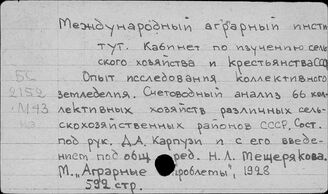 Международный аграрный инсти
тут. Кабинет по изучению сель
ского хозяйства и крестьянства СССР
БС Опыт исследования коллективного
2152 земледелия. Счетоводный анализ 66 кол
М43 лективных хозяйств различных сель-
скохозяйственных районов СССР. Сост.
под рук. Д.А. Карпузи и с его введе-
нием под общ ред. Н.Л. Мещерякова.
М., "Аграрные проблемы", 1928
592 стр.